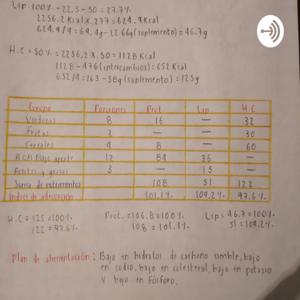 Lip. 100% - 22.3 - 50 = 27.7%
2256.2 Kcal x .277 = 624.9 Kcal
624.9/9 = 69.4g - 22.66g (suplemento) = 46.7g
H.C = 50% = 2256.2 x .50 = 1128 Kcal
1128 - 476 (intercambios) = 652 Kcal
652/4 = 163 - 38g (suplemento) = 125g
Grupo Porciones Prot. Lip H.C
Verduras 8 16 — 32
Frutas 2 — — 30
Cereales 4 8 — 60
AOA Bajo aporte 12 84 36 —
Aceites y grasas 3 — 15 —
Suma de nutrimentos 108 51 122
Indice de adecuación 101.1% 109.2% 97.6%
H.C = 125 = 100% Prot. = 106.8 = 100% Lip = 46.7 = 100%
122 = 97.6% 108 = 101.1% 51 = 109.2%
Plan de alimentación: Bajo en hidratos de carbono simple, bajo
en sodio, bajo en colesterol, bajo en potasio
y bajo en Fósforo.